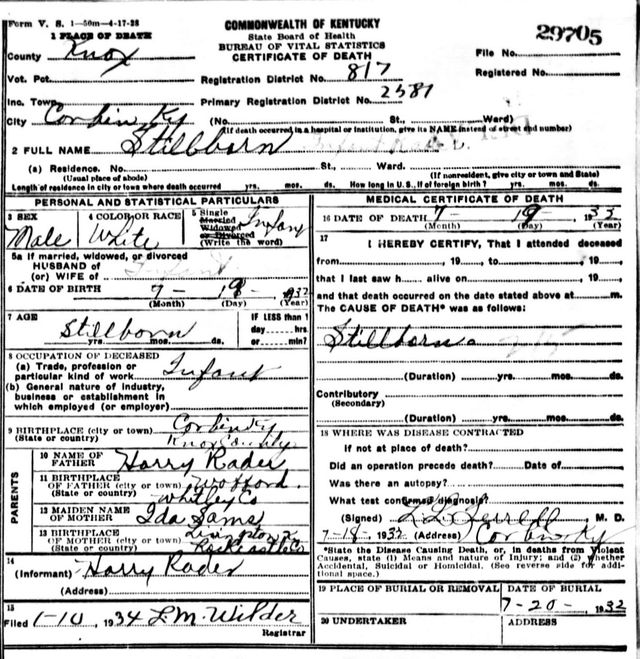 Form V. S. 1—50m—4-17-28
COMMONWEALTH OF KENTUCKY
State Board of Health
BUREAU OF VITAL STATISTICS
CERTIFICATE OF DEATH
29705
1 PLACE OF DEATH
County Knox
File No.
Vot. Pct. Registration District No. 817
Registered No.
Inc. Town Primary Registration District No. 2581
City Corbin Ky (No. St., Ward)
(If death occurred in a hospital or institution, give its NAME instead of street and number)
2 FULL NAME Stillborn
(a) Residence. No. St., Ward.
(Usual place of abode) (If nonresident, give city or town and State)
Length of residence in city or town where death occurred yrs. mos. ds. How long in U. S., if of foreign birth? yrs. mos. ds.
PERSONAL AND STATISTICAL PARTICULARS
3 SEX Male
4 COLOR OR RACE White
5 Single
Married
Widowed
or Divorced
(Write the word)
Infant
5a If married, widowed, or divorced
HUSBAND OF
(or) WIFE of Infant
6 DATE OF BIRTH 7- 19- 1932
(Month) (Day) (Year)
7 AGE Stillborn
yrs. mos. ds.
IF LESS than 1
day hrs.
or min?
8 OCCUPATION OF DECEASED
(a) Trade, profession or
particular kind of work Infant
(b) General nature of industry,
business or establishment in
which employed (or employer)
9 BIRTHPLACE (city or town) Corbin Ky
(State or country) Knox County
PARENTS
10 NAME OF
FATHER Harry Rader
11 BIRTHPLACE
OF FATHER (city or town) Wofford
(State or country) Whitley Co
12 MAIDEN NAME
OF MOTHER Ida Sams
13 BIRTHPLACE
OF MOTHER (city or town) Livingston
(State or country) Rockcastle Co
14
(Informant) Harry Rader
(Address)
15
Filed 1-10, 1934 L. M. Wilder
Registrar
MEDICAL CERTIFICATE OF DEATH
16 DATE OF DEATH 7- 19- 1933
(Month) (Day) (Year)
17 I HEREBY CERTIFY, That I attended deceased
from , 19 to , 19
that I last saw h alive on , 19
and that death occurred on the date stated above at m.
The CAUSE OF DEATH* was as follows:
Stillborn
(Duration) yrs. mos. ds.
Contributory
(Secondary)
(Duration) yrs. mos. ds.
18 WHERE WAS DISEASE CONTRACTED
if not at place of death?
Did an operation precede death? Date of
Was there an autopsy?
What test confirmed diagnosis?
(Signed) L. L. Terrell M. D.
7-18-1932 (Address) Corbin Ky
*State the Disease Causing Death, or, in deaths from Violent
Causes, state (1) Means and nature of Injury; and (2) whether
Accidental, Suicidal or Homicidal. (See reverse side for addi-
tional space.)
19 PLACE OF BURIAL OR REMOVAL
DATE OF BURIAL
7-20-1932
20 UNDERTAKER
ADDRESS